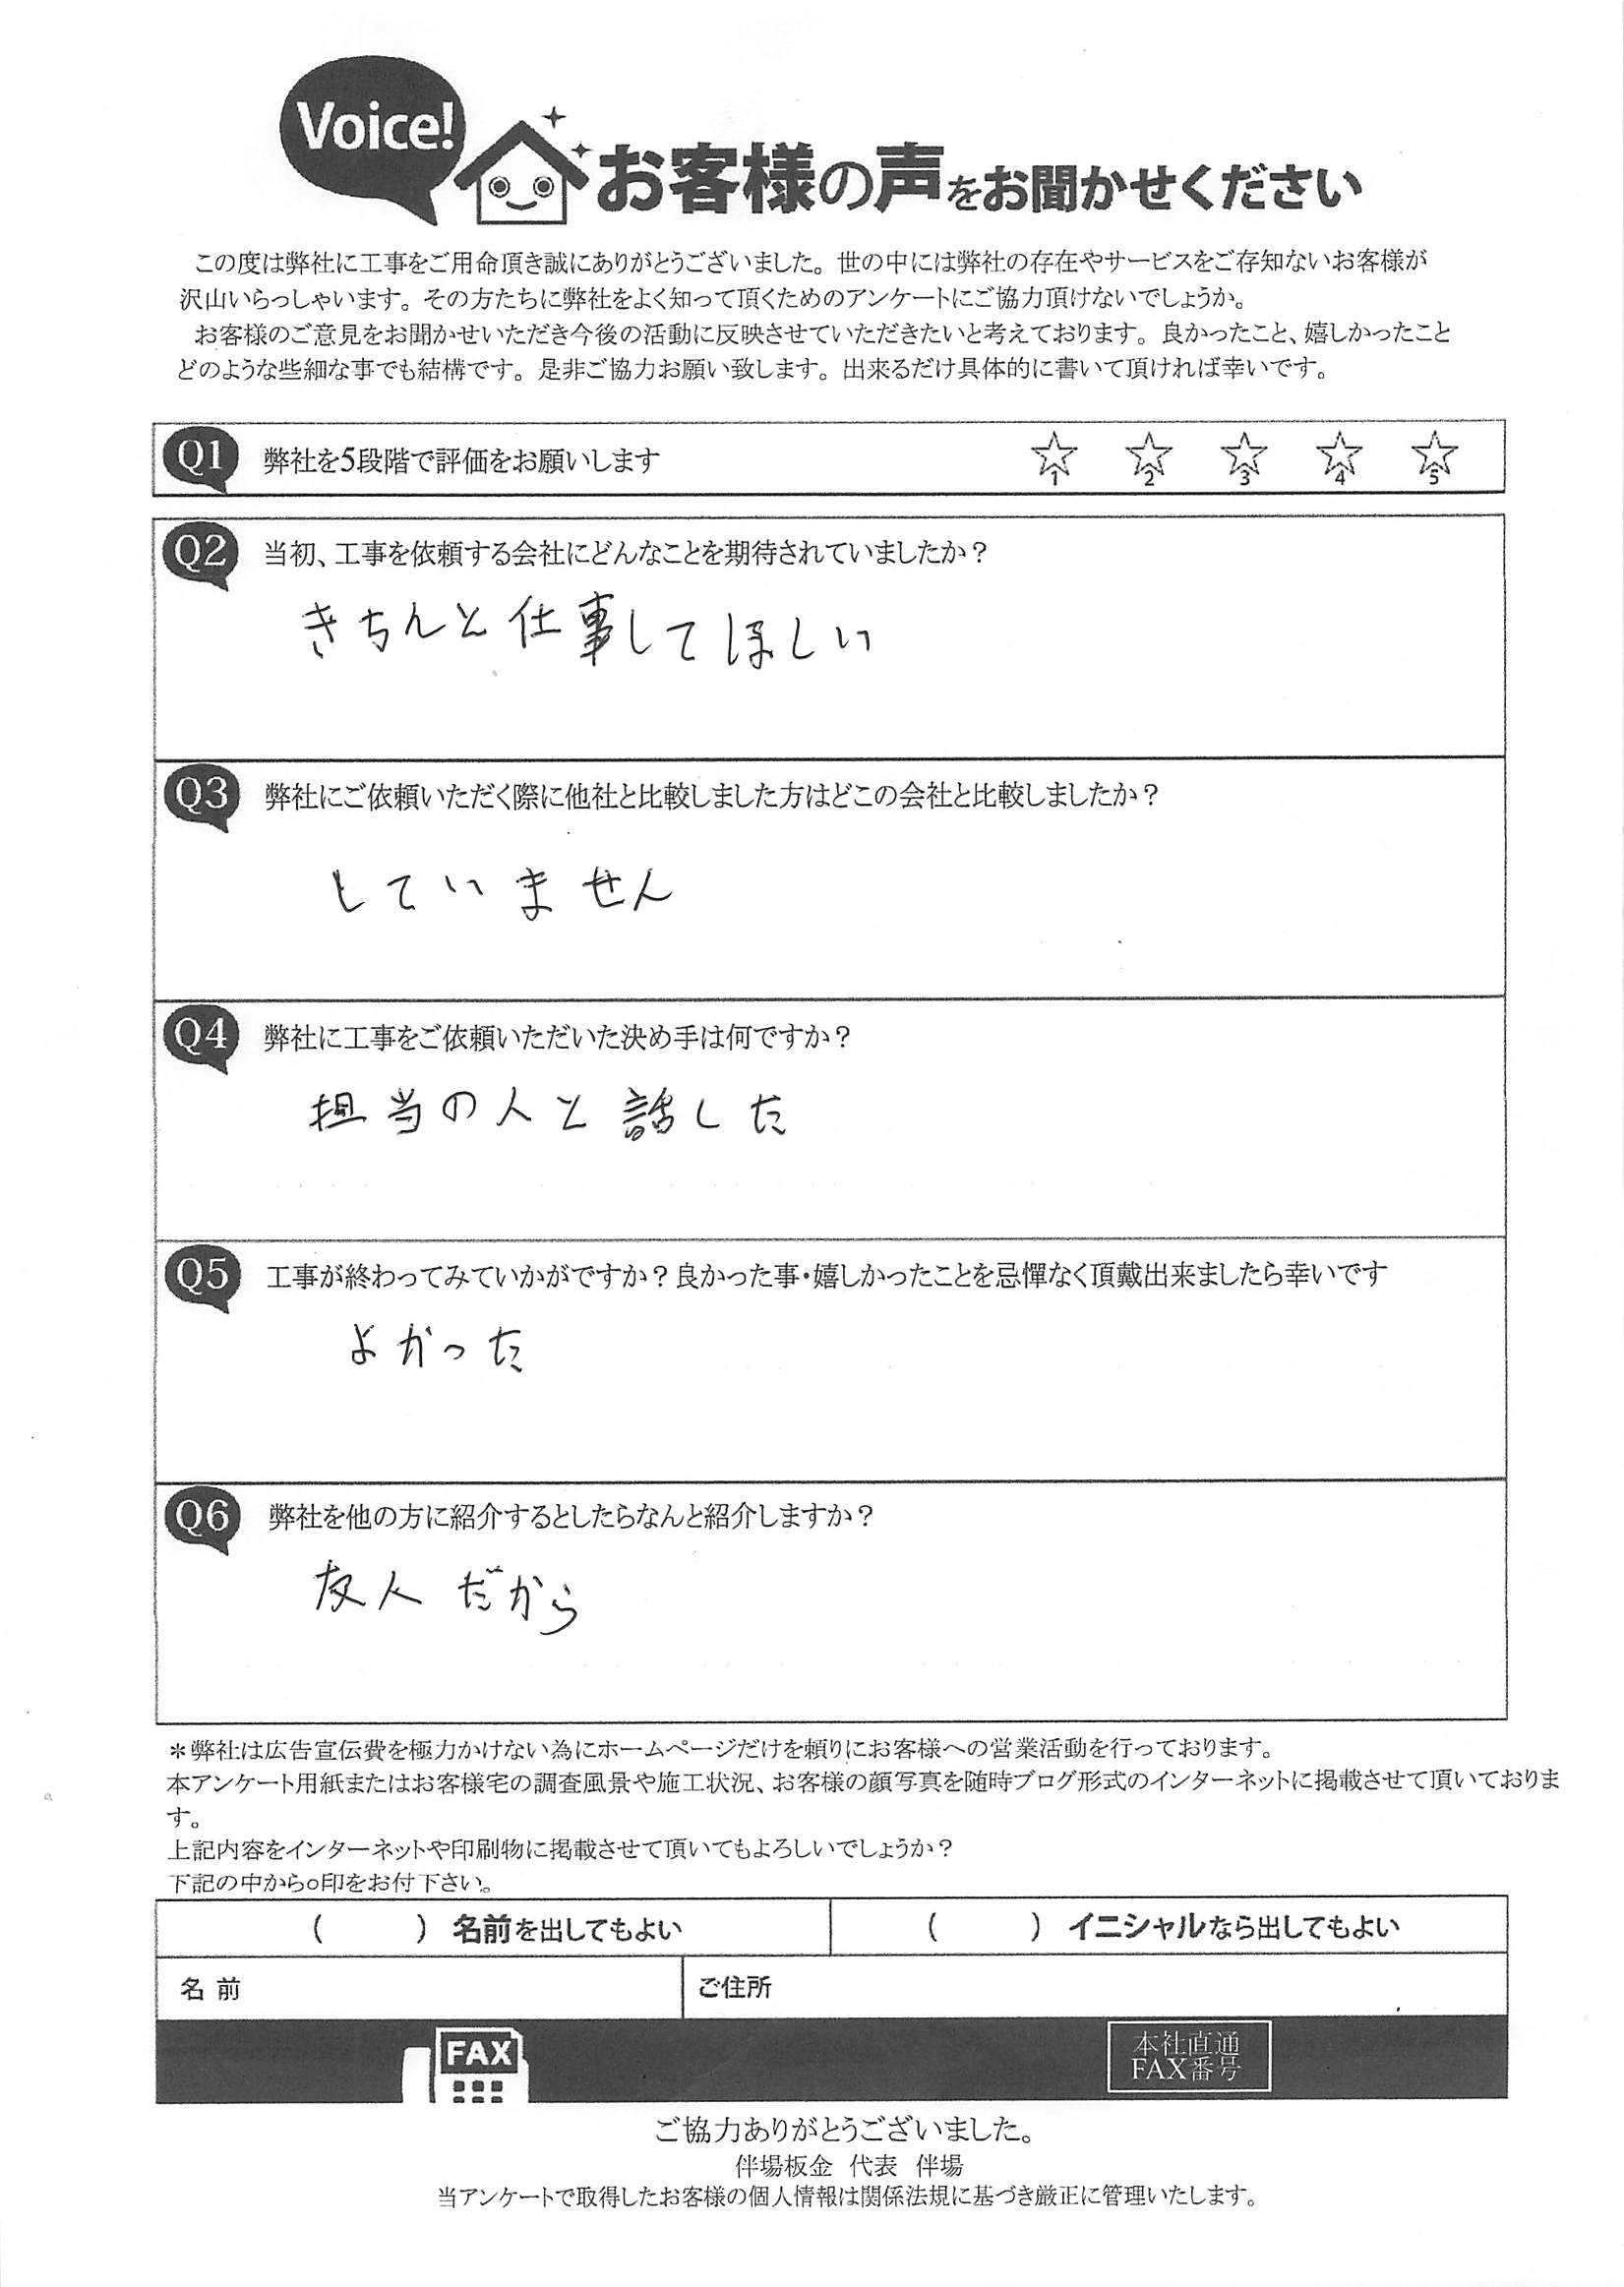 Voice!
お客様の声をお聞かせください
この度は弊社に工事をご用命頂き誠にありがとうございました。世の中には弊社の存在やサービスをご存知ないお客様が
沢山いらっしゃいます。その方たちに弊社をよく知って頂くためのアンケートにご協力頂けないでしょうか。
お客様のご意見をお聞かせいただき今後の活動に反映させていただきたいと考えております。良かったこと、嬉しかったこと
どのような些細な事でも結構です。是非ご協力お願い致します。出来るだけ具体的に書いて頂ければ幸いです。
Q1 弊社を5段階で評価をお願いします ☆1 ☆2 ☆3 ☆4 ☆5
Q2 当初、工事を依頼する会社にどんなことを期待されていましたか?
きちんと仕事してほしい
Q3 弊社にご依頼いただく際に他社と比較しました方はどこの会社と比較しましたか?
していません
Q4 弊社に工事をご依頼いただいた決め手は何ですか?
担当の人と話した
Q5 工事が終わってみていかがですか?良かった事・嬉しかったことを忌憚なく頂戴出来ましたら幸いです
よかった
Q6 弊社を他の方に紹介するとしたらなんと紹介しますか?
友人だから
*弊社は広告宣伝費を極力かけない為にホームページだけを頼りにお客様への営業活動を行っております。
本アンケート用紙またはお客様宅の調査風景や施工状況、お客様の顔写真を随時ブログ形式のインターネットに掲載させて頂いておりま
す。
上記内容をインターネットや印刷物に掲載させて頂いてもよろしいでしょうか?
下記の中から○印をお付下さい。
( ) 名前を出してもよい ( ) イニシャルなら出してもよい
名 前 ご住所
FAX
本社直通
FAX番号
ご協力ありがとうございました。
伴場板金 代表 伴場
当アンケートで取得したお客様の個人情報は関係法規に基づき厳正に管理いたします。